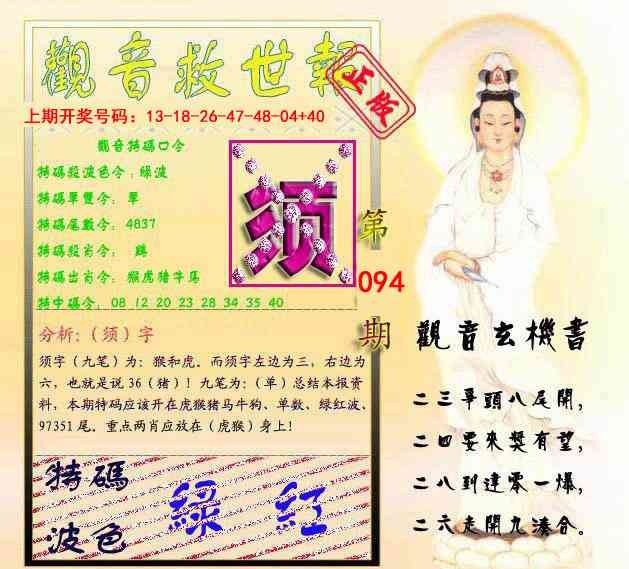 觀音救世報
正版
上期开奖号码：13-18-26-47-48-04+40
觀音特碼口令
特碼殺波色令：绿波
特碼單雙令：單
特碼尾數令：4837
特碼殺肖令：鷄
特碼出肖令：猴虎猪牛馬
特中碼令：08 12 20 23 28 34 35 40
须
第
094
期
分析:（须）字
须字（九笔）为：猴和虎。而须字左边为三，右边为
六，也就是说 36（猪）！九笔为：（单）总结本报资
料，本期特码应该开在虎猴猪马牛狗、单数、绿红波、
97351 尾。重点两肖应放在（虎猴）身上！
特碼
波色
綠 紅
觀音玄機書
二三爭頭八尾開，
二四要來獎有望，
二八到達零一爆，
二六走開九湊合。